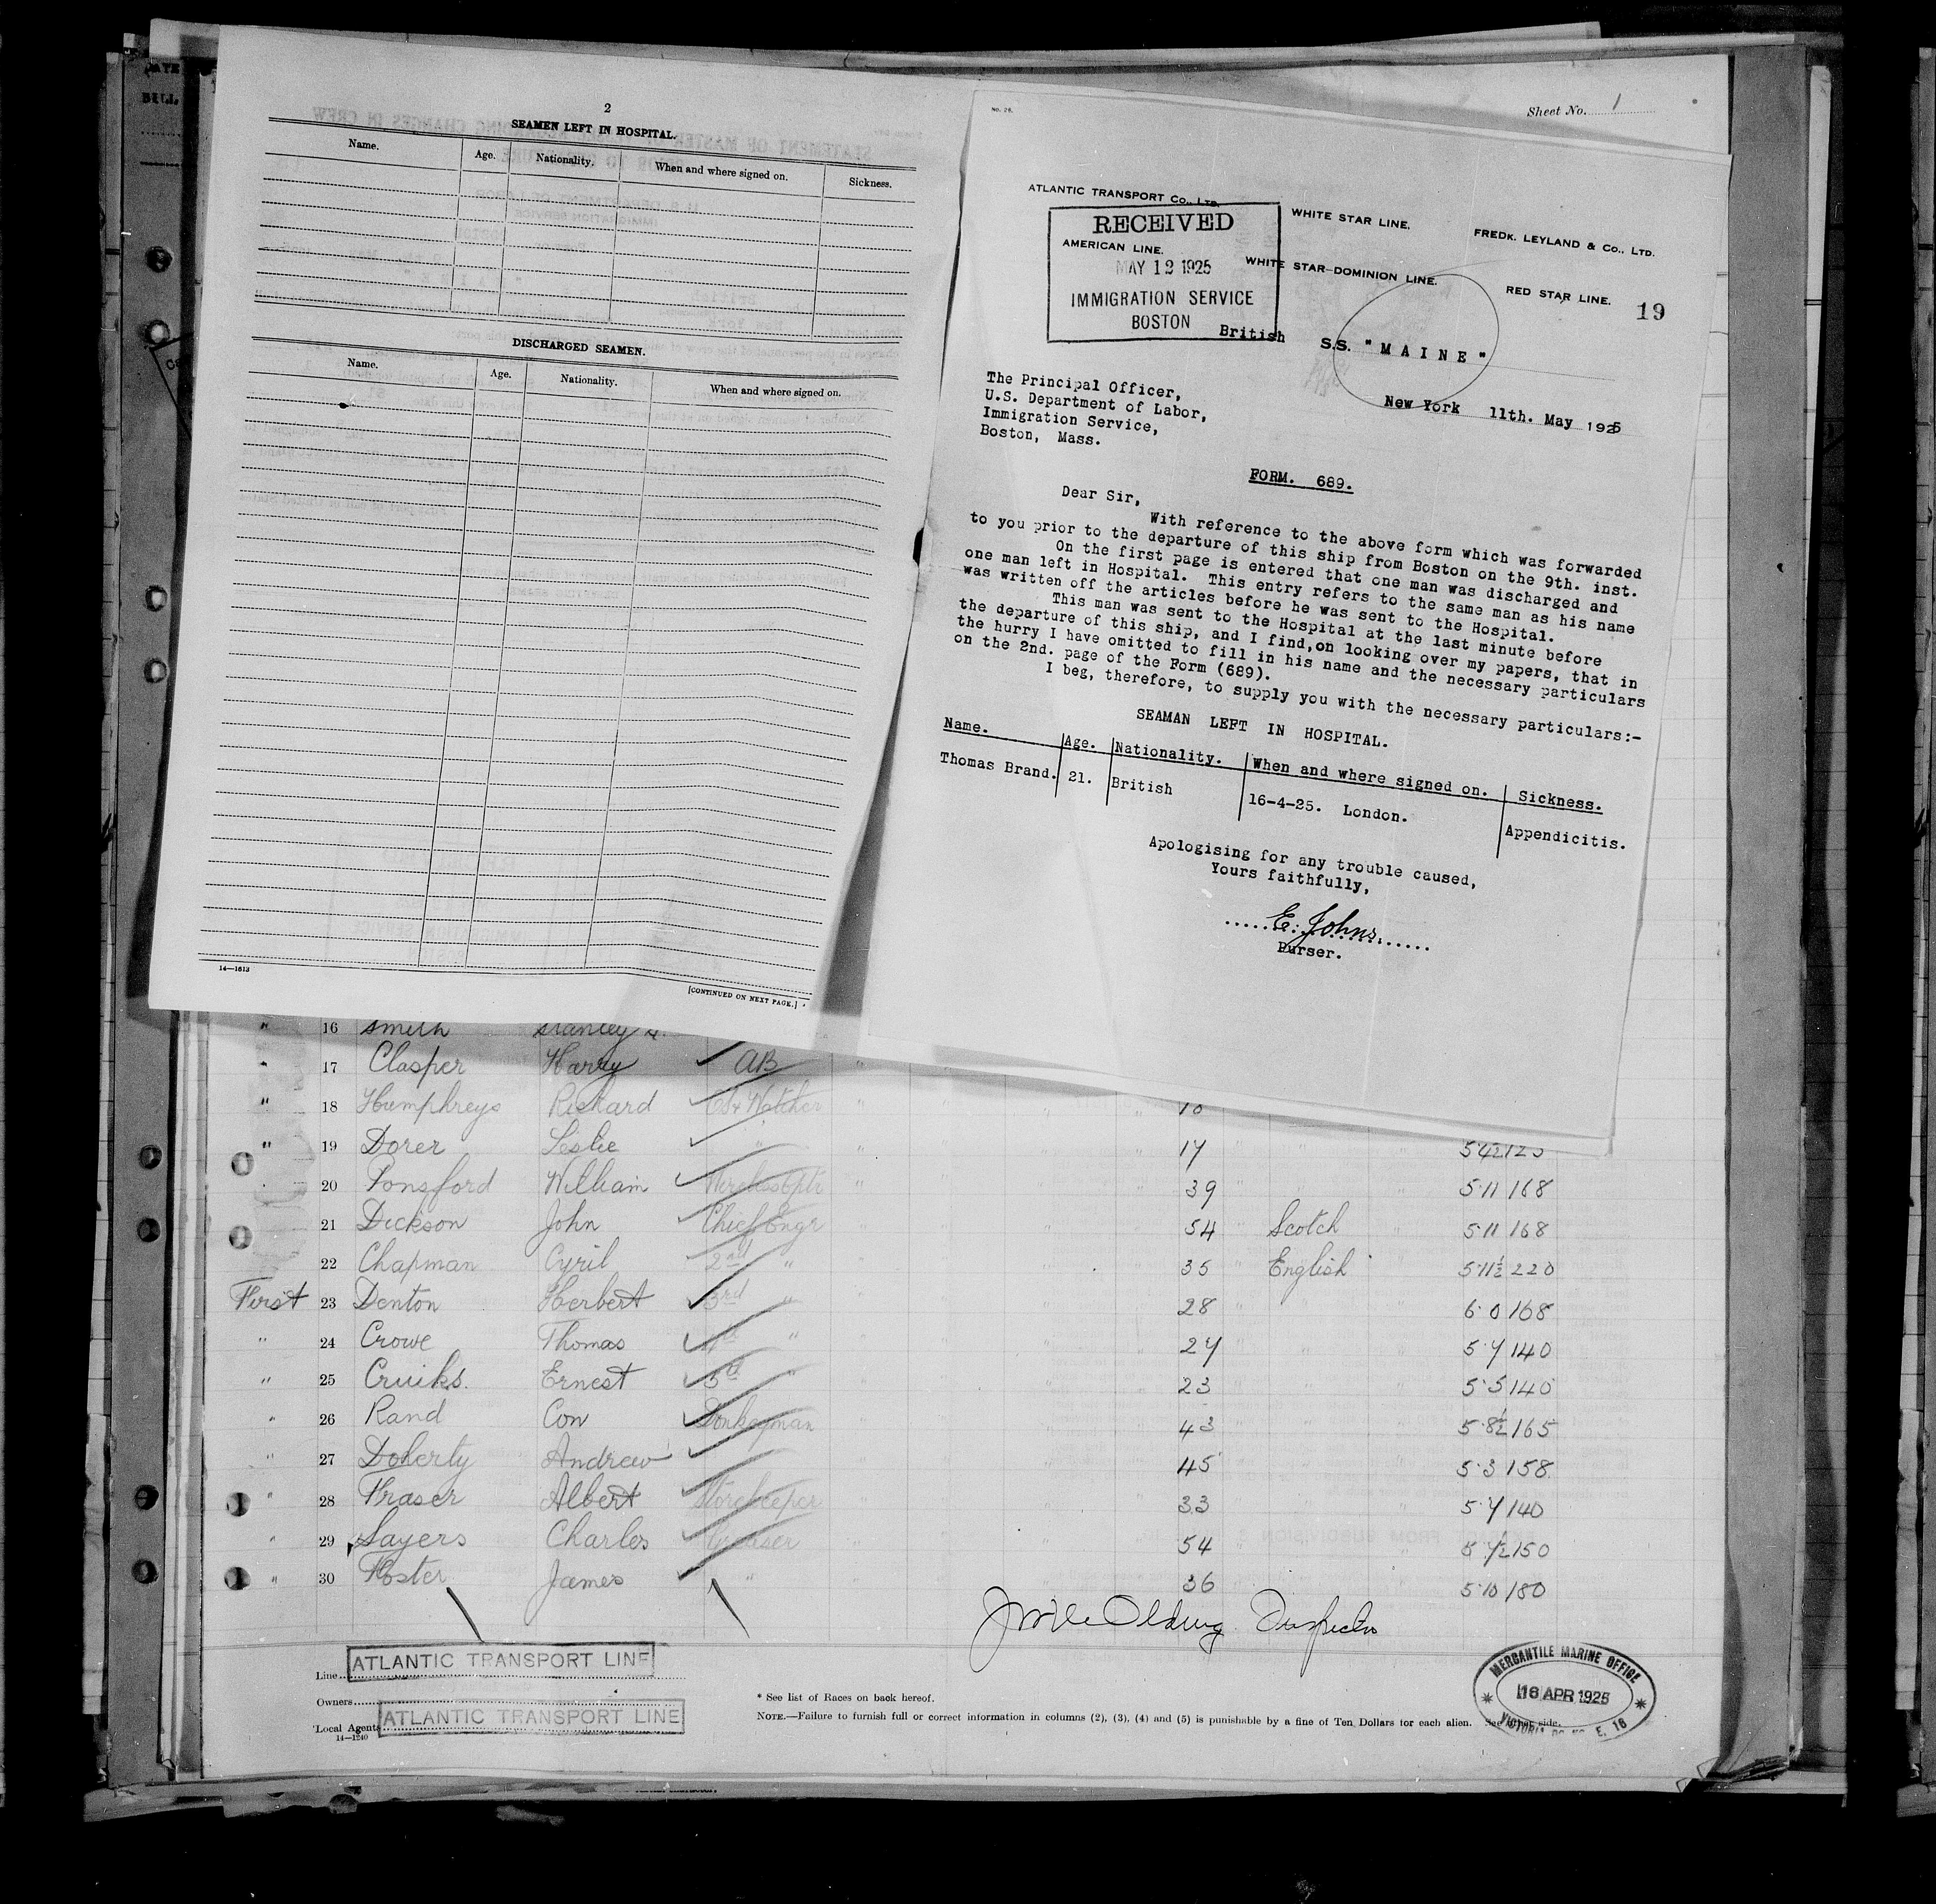 2
SEAMEN LEFT IN HOSPITAL.
Name. Age. Nationality. When and where signed on. Sickness.
DISCHARGED SEAMEN.
Name. Age. Nationality. When and where signed on.
14—1613
[CONTINUED ON NEXT PAGE.]
Sheet No. 1
No. 26.
ATLANTIC TRANSPORT Co., LTD.
WHITE STAR LINE.
FREDK. LEYLAND & Co., LTD.
RECEIVED
AMERICAN LINE.
MAY 12 1925
WHITE STAR-DOMINION LINE.
RED STAR LINE.
19
IMMIGRATION SERVICE
BOSTON
British S.S. "MAINE"
New York 11th. May 1925
The Principal Officer,
U.S. Department of Labor,
Immigration Service,
Boston, Mass.
FORM. 689.
Dear Sir,
With reference to the above form which was forwarded
to you prior to the departure of this ship from Boston on the 9th. inst.
On the first page is entered that one man was discharged and
one man left in Hospital. This entry refers to the same man as his name
was written off the articles before he was sent to the Hospital.
This man was sent to the Hospital at the last minute before
the departure of this ship, and I find,on looking over my papers, that in
the hurry I have omitted to fill in his name and the necessary particulars
on the 2nd. page of the Form (689).
I beg, therefore, to supply you with the necessary particulars:-
SEAMAN LEFT IN HOSPITAL.
Name. Age. Nationality. When and where signed on. Sickness.
Thomas Brand. 21. British 16-4-25. London. Appendicitis.
Apologising for any trouble caused,
Yours faithfully,
E. Johns.
Purser.
" 16 Smith Stanley
" 17 Clasper Harry AB
" 18 Humphreys Richard
" 19 Dorer Leslie " 17
20 Ponsford William Wireless Optr 39 5·11 168
21 Dickson John Chief Engr 54 Scotch 5·11 168
22 Chapman Cyril 2nd " 35 English 5·11½ 220
First 23 Denton Herbert 3rd " 28 6·0 168
" 24 Crowe Thomas " 27 5·7 140
" 25 Ernest 5th " 23 5·5 140
" 26 Rand Con Donkeyman 43 5·8½ 165
" 27 Doherty Andrew 45 5·3 158
" 28 Fraser Albert Storekeeper 33 5·7 140
" 29 Sayers Charles Greaser 54 150
" 30 Foster James " 36 5·10 180
Inspector
Line ATLANTIC TRANSPORT LINE
Owners
Local Agents ATLANTIC TRANSPORT LINE
14—1240
* See list of Races on back hereof.
NOTE.—Failure to furnish full or correct information in columns (2), (3), (4) and (5) is punishable by a fine of Ten Dollars for each alien.
MERCANTILE MARINE OFFICE
16 APR 1925
E. 16